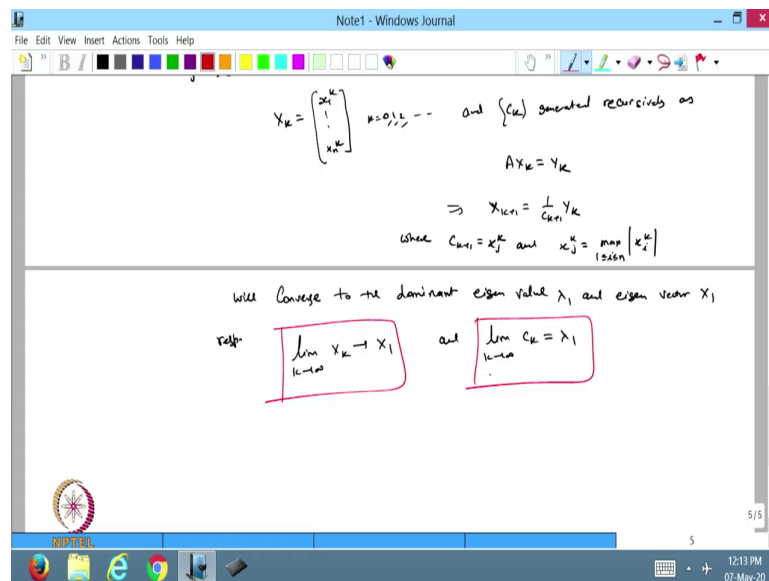 Note1 - Windows Journal
File Edit View Insert Actions Tools Help
X_k = [x_1^k ⋮ x_n^k] k=0,1,2, --- and {C_k} generated recursively as
A X_k = Y_k
⇒ X_{k+1} = 1/C_{k+1} Y_k
where C_{k+1} = x_j^k and x_j^k = max_{1≤i≤n} |x_i^k|
will Converge to the dominant eigen value λ_1 and eigen vector X_1
resp. lim_{k→∞} X_k → X_1 and lim_{k→∞} C_k = λ_1
NPTEL
5/5
5
12:13 PM
07-May-20